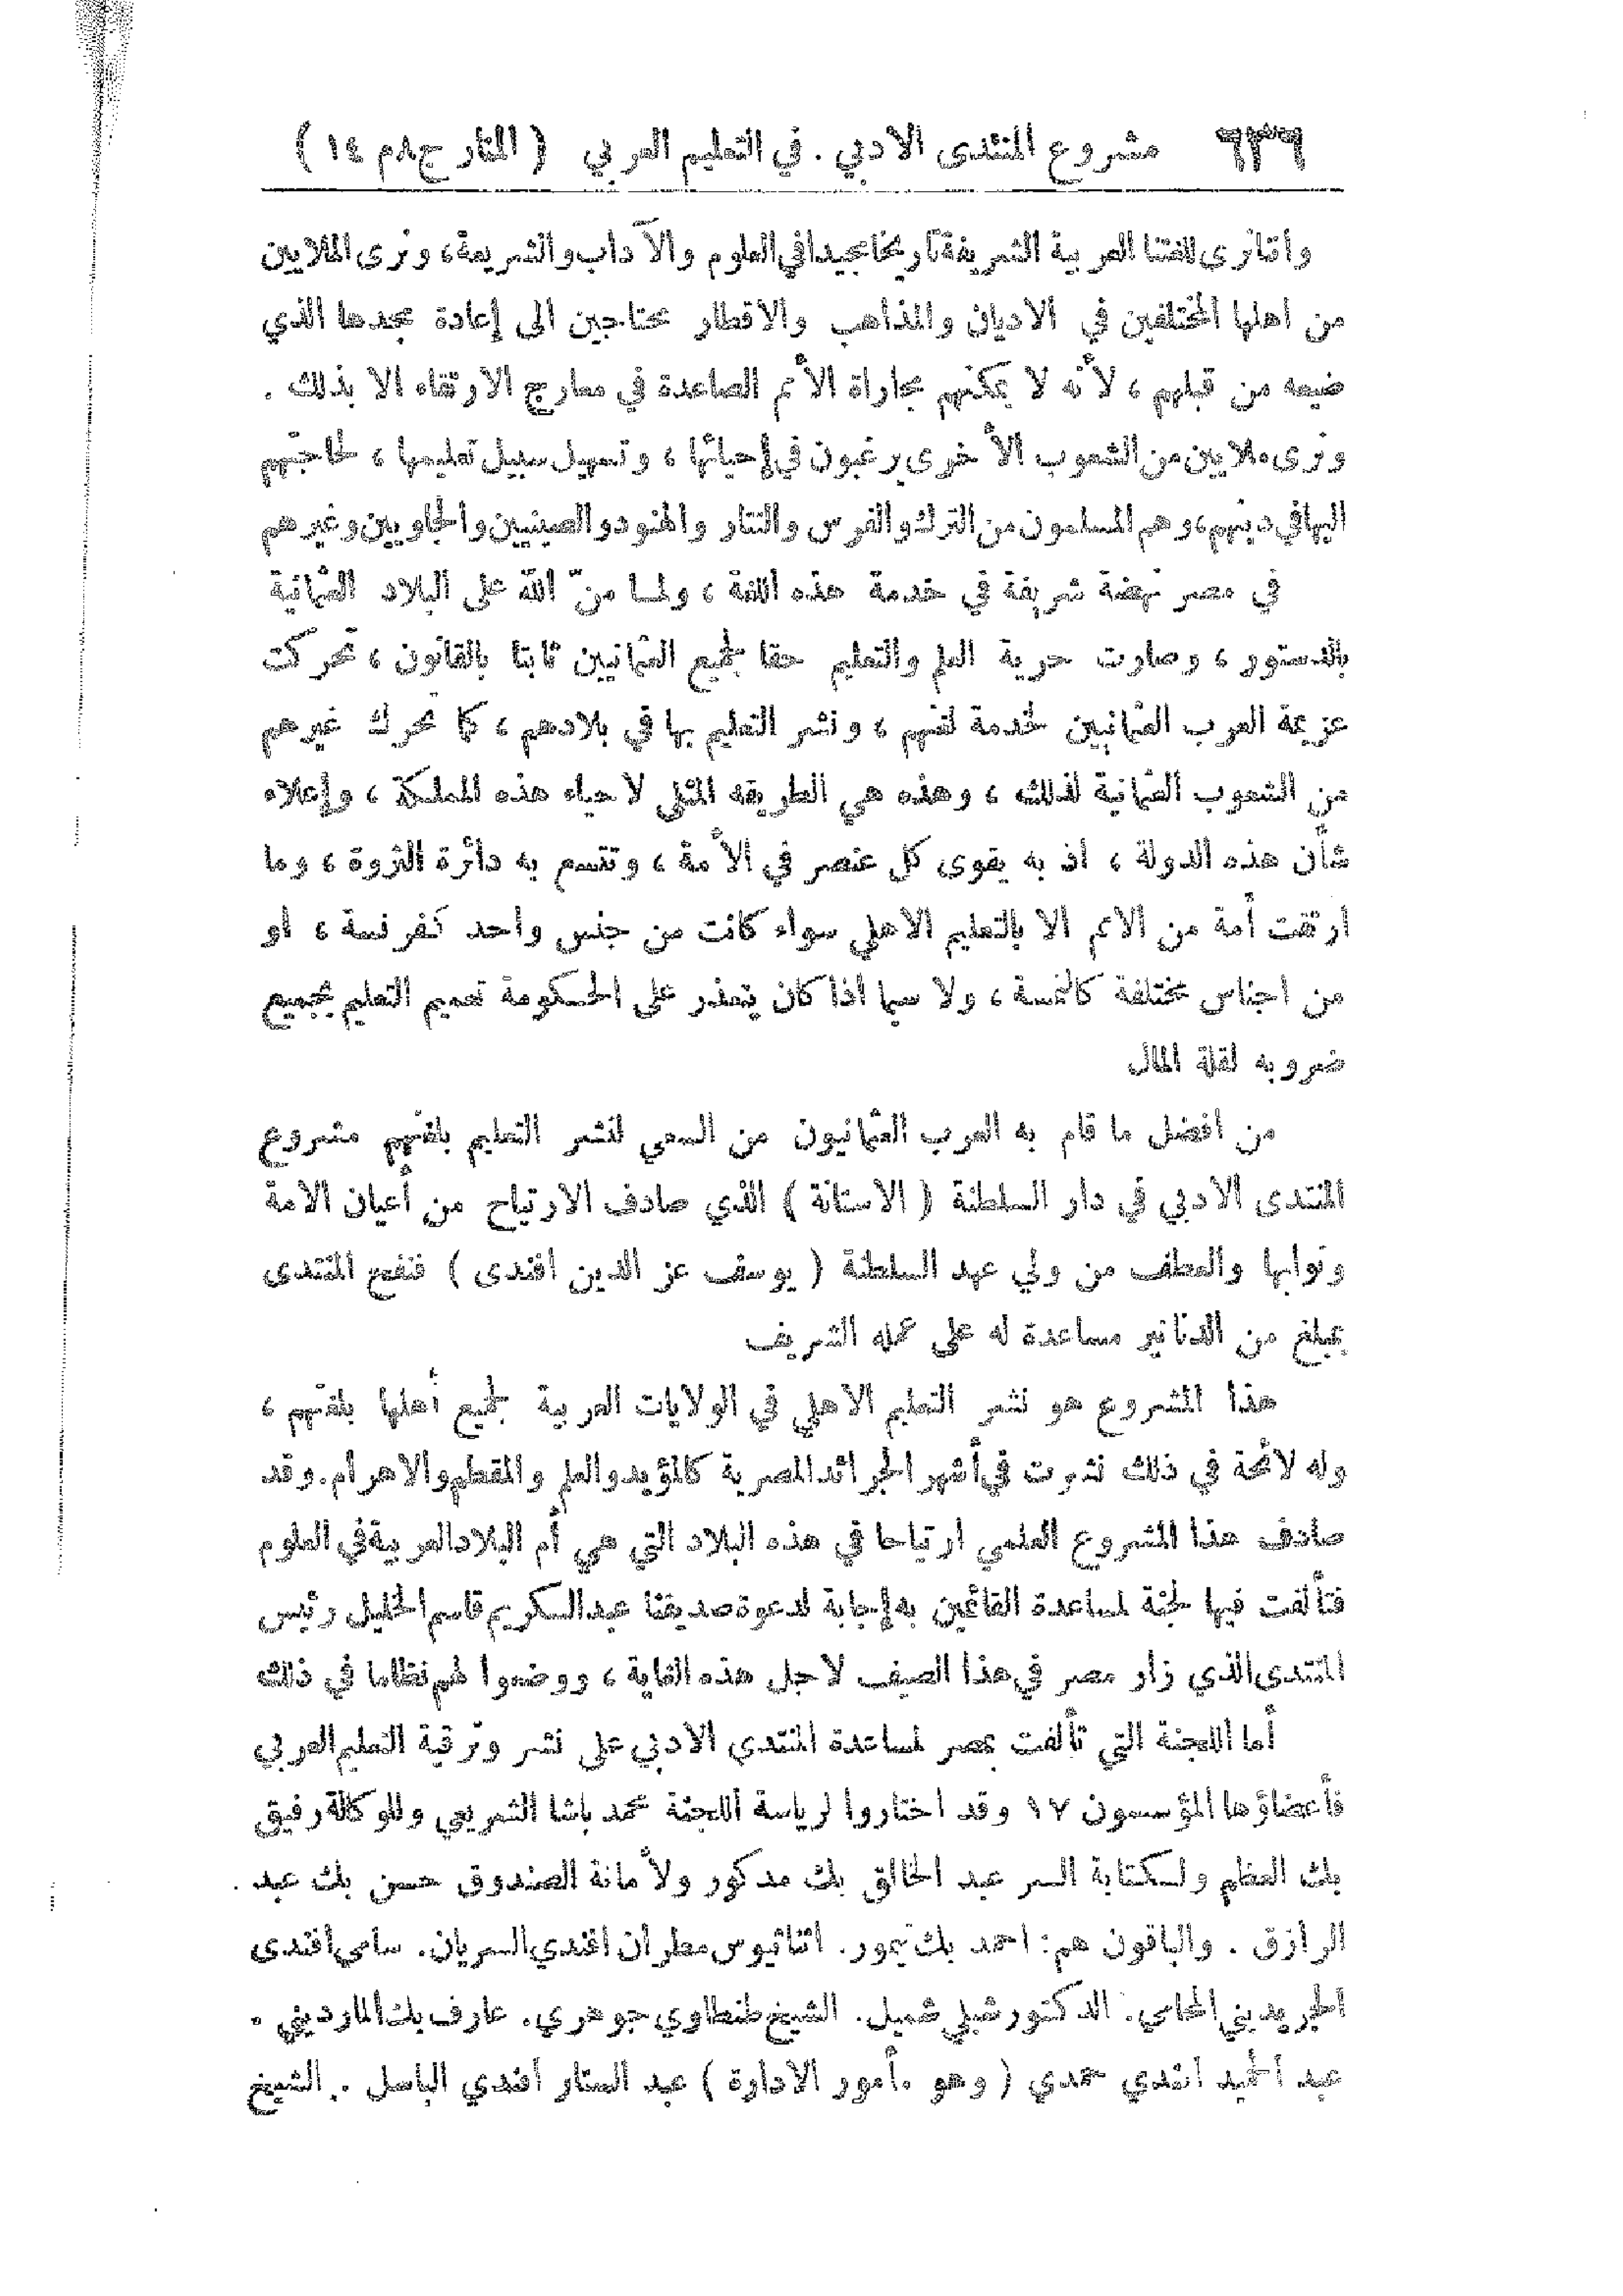 ٦٣٦ مشروع المنتدى الادبي . في التعليم العربي ( المنار ج ٨ م ١٤ )
وأننا نرى للغتنا العربية الشريفة تاريخا مجيدا في العلوم والآداب والشريعة ، ونرى الملايين
من اهلها المختلفين في الاديان والمذاهب والاقطار محتاجين الى إعادة مجدها الذي
ضيعه من قبلهم ، لأنه لا يمكنهم مجاراة الأمم الصاعدة في معارج الارتقاء الا بذلك .
ونرى ملايين من الشعوب الأخرى يرغبون في إحيائها ، وتسهيل سبيل تعليمها ، لحاجتهم
اليها في دينهم ، وهم المسلمون من الترك والفرس والتتار والهنود والصينيين والجاويين وغيرهم
في مصر نهضة شريفة في خدمة هذه اللغة ، ولما منّ الله على البلاد العثمانية
بالدستور ، وصارت حرية العلم والتعليم حقا لجميع العثمانيين ثابتا بالقانون ، تحركت
عزيمة العرب العثمانيين لخدمة لغتهم ، ونشر التعليم بها في بلادهم ، كما تحرك غيرهم
من الشعوب العثمانية لذلك ، وهذه هي الطريقة المثلى لاحياء هذه المملكة ، وإعلاء
شأن هذه الدولة ، اذ به يقوى كل عنصر في الأمة ، وتتسع به دائرة الثروة ، وما
ارتقت أمة من الامم الا بالتعليم الاهلي سواء كانت من جنس واحد كفرنسة ، او
من اجناس مختلفة كالنمسة ، ولا سيما اذا كان يتعذر على الحكومة تعميم التعليم بجميع
ضروبه لقلة المال
من افضل ما قام به العرب العثمانيون من السعي لنشر التعليم بلغتهم مشروع
المنتدى الادبي في دار السلطنة ( الاستانة ) الذي صادف الارتياح من أعيان الامة
ونوابها والعطف من ولي عهد السلطنة ( يوسف عز الدين افندى ) فنفح المنتدى
بمبلغ من الدنانير مساعدة له على عمله الشريف
هذا المشروع هو نشر التعليم الاهلي في الولايات العربية لجميع أهلها بلغتهم ،
وله لائحة في ذلك نشرت في أشهر الجرائد المصرية كالمؤيد والعلم والمقطم والاهرام . وقد
صادف هذا المشروع العلمي ارتياحا في هذه البلاد التي هي أم البلاد العربية في العلوم
فتألفت فيها لجنة لمساعدة القائمين به إجابة لدعوة صديقنا عبد الكريم قاسم الخليل رئيس
المنتدى الذي زار مصر في هذا الصيف لاجل هذه الغاية ، ووضعوا لهم نظاما في ذلك
أما اللجنة التي تألفت بمصر لمساعدة المنتدى الادبي على نشر وترقية التعليم العربي
فأعضاؤها المؤسسون ١٧ وقد اختاروا لرياسة اللجنة محمد باشا الشريعي وللوكالة رفيق
بك العظم ولكتابة السر عبد الخالق بك مدكور ولأمانة الصندوق حسن بك عبد
الرازق . والباقون هم : احمد بك تيمور . اثناثيوس مطران افندي السريان . سامي افندى
الجريديني المحامي . الدكتور شبلي شميل . الشيخ طنطاوي جوهري . عارف بك المارديني .
عبد الحميد افندي حمدي ( وهو مأمور الادارة ) عبد الستار افندي الباسل . الشيخ